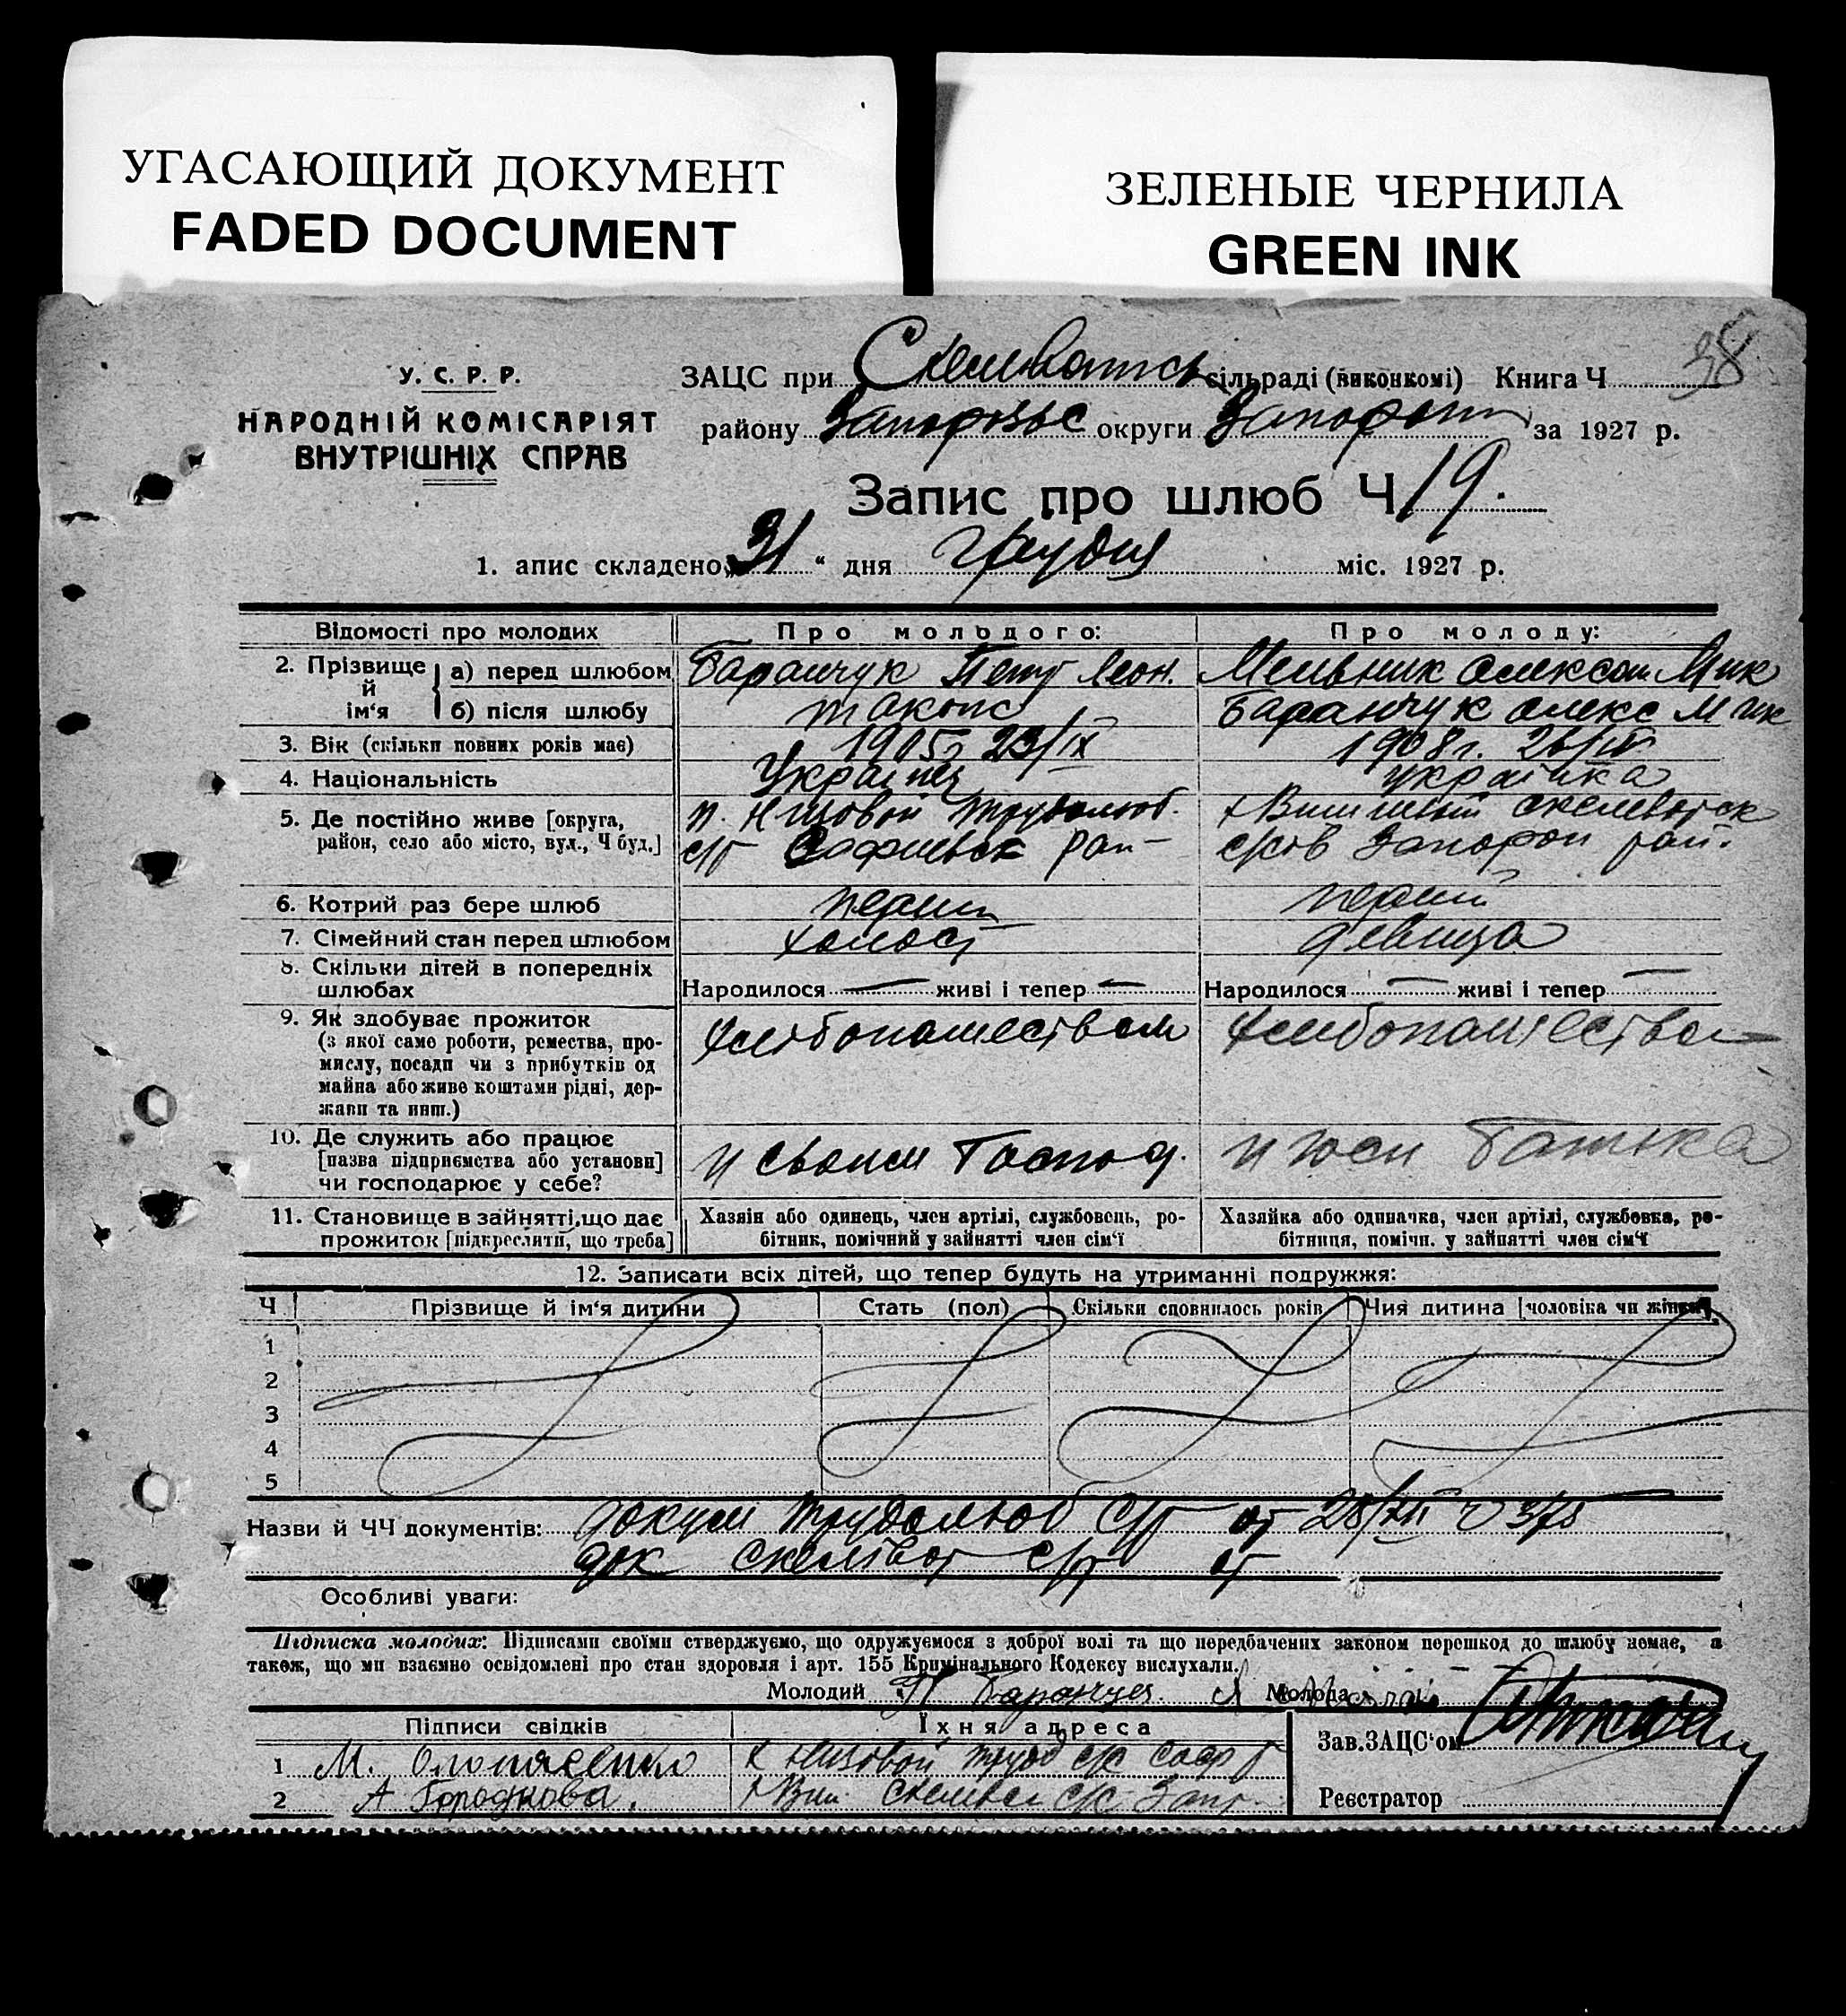 УГАСАЮЩИЙ ДОКУМЕНТ
FADED DOCUMENT
ЗЕЛЕНЫЕ ЧЕРНИЛА
GREEN INK
38
У. С. Р. Р.
НАРОДНІЙ КОМІСАРІЯТ
ВНУТРІШНІХ СПРАВ
ЗАЦС при сільраді (виконкомі) Книга Ч
району округи за 1927 р.
Запис про шлюб Ч 19.
1. апис складено „31“ дня Грудня міс. 1927 р.
Відомості про молодих
Про молодого:
Про молоду:
2. Прізвище й ім‘я
а) перед шлюбом
Баранчук Петр Леон.
Мельник Олексан Мик
б) після шлюбу
також
Баранчук Олекс Мик
3. Вік (скільки повних років має)
1905г 23/IX
1908г. 26/IV
4. Національність
Українец
українка
5. Де постійно живе [округа, район, село або місто, вул., Ч буд.]
Низовой Трудолюб.
с/г Софиевск рай
Скелеватск
Запорож рай.
6. Котрий раз бере шлюб
перший
перший
7. Сімейний стан перед шлюбом
холост
девица
8. Скільки дітей в попередніх шлюбах
Народилося — живі і тепер —
Народилося — живі і тепер —
9. Як здобуває прожиток
(з якої само роботи, ремества, промислу, посади чи з прибутків од майна або живе коштами рідні, держави та инш.)
хлебопашеством
10. Де служить або працює
[назва підприємства або установи]
чи господарює у себе?
у своим Господ.
у Батька
11. Становище в зайнятті, що дає прожиток [підкреслити, що треба]
Хазяін або одинець, член артілі, службовець, робітник, помічний у зайнятті член сім‘ї
Хазяйка або одиначка, член артілі, службовка, робітниця, помічн. у зайнятті член сім‘ї
12. Записати всіх дітей, що тепер будуть на утриманні подружжя:
Ч
Прізвище й ім‘я дитини
Стать (пол)
Скільки сповнилось років
Чия дитина [чоловіка чи жінки]
1
2
3
4
5
Назви й ЧЧ документів: докум Трудолюб с/г от 28/XII 375
док Скеліват с/г от
Особливі уваги:
Підписка молодих: Підписами своїми стверджуємо, що одружуємося з доброї волі та що передбачених законом перешкод до шлюбу немає, а
також, що ми взаємно освідомлені про стан здоровля і арт. 155 Кримінального Кодексу вислухали.
Молодий Молода
Підписи свідків
Їхня адреса
Зав. ЗАЦС‘ом
1 М.
х Низовой Труд с/с Соф
2 А Городкова.
Скелев с/с Запр
Реєстратор